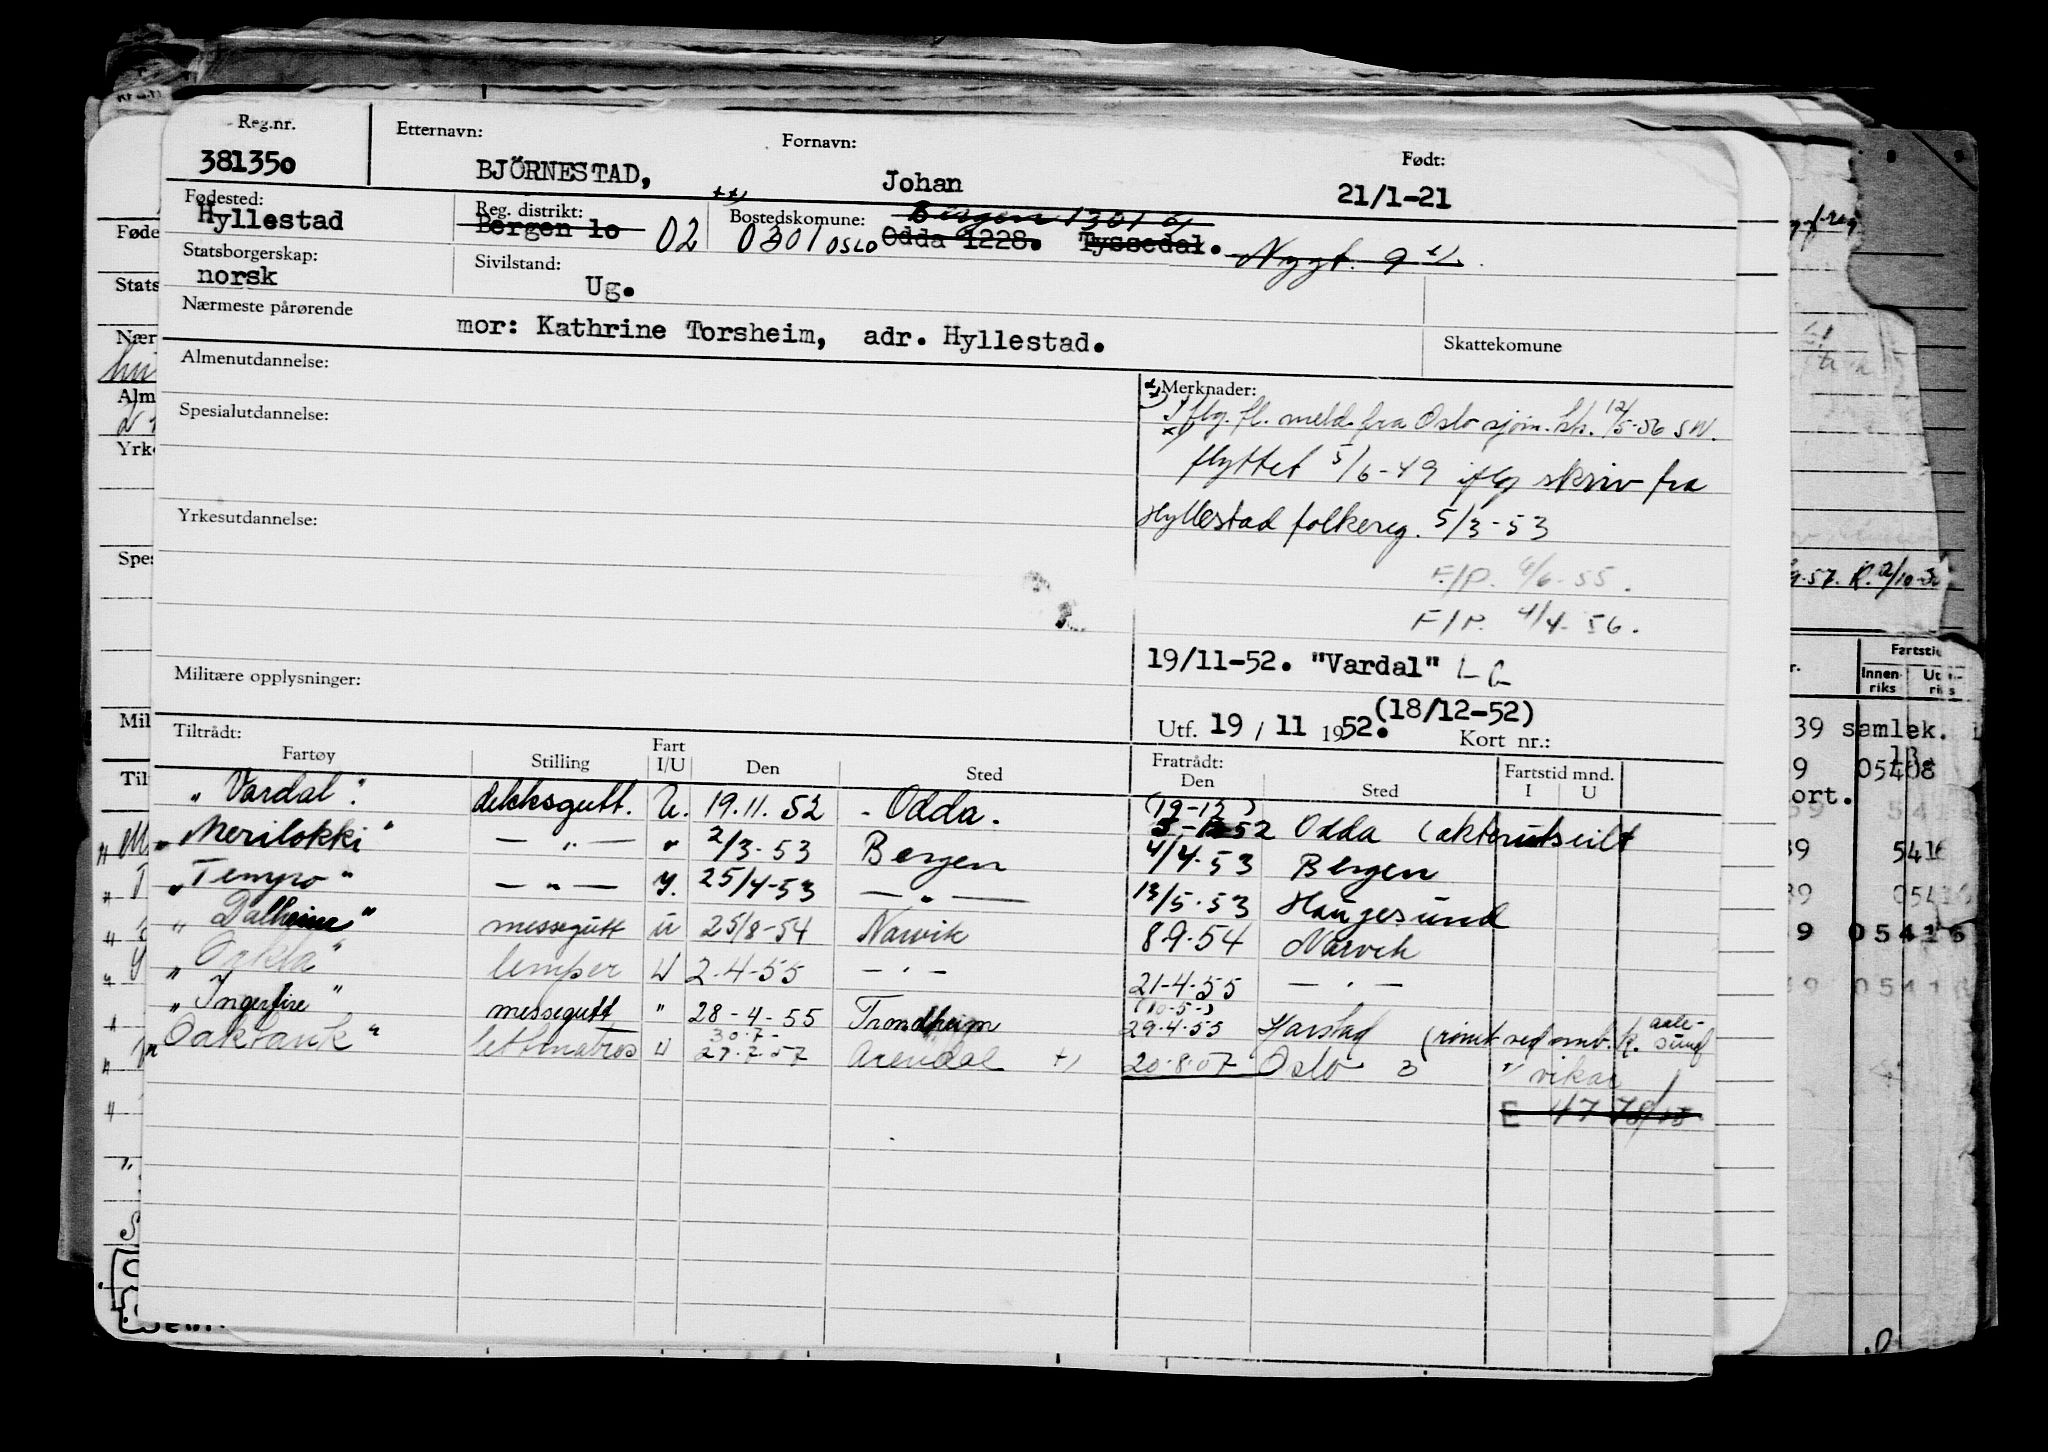 Reg.nr. Etternavn: Fornavn: Født:
381350 BJÖRNESTAD, Johan 21/1-21
Fødested: Reg. distrikt: Bostedskomune: Bergen 1301
Hyllestad Bergen 10 02 0301 OSLO Odda 1228. Tyssedal. Nygt. 9
Statsborgerskap: Sivilstand:
norsk Ug.
Nærmeste pårørende
mor: Kathrine Torsheim, adr. Hyllestad. Skattekomune
Almenutdannelse: Merknader:
Iflg. fl. meld. fra Oslo sjøm. kk. 12/5-56 SW.
Spesialutdannelse:
flyttet 5/6-49 iflg skriv fra
Yrkesutdannelse: Hyllestad folkereg. 5/3-53
F/P. 6/6-55.
F/P. 4/4-56.
Militære opplysninger: 19/11-52. "Vardal"
(18/12-52)
Tiltrådt: Utf. 19 / 11 1952. Kort nr.:
Fartøy Stilling Fart I/U Den Sted Fratrådt: Den Sted Fartstid mnd. I U
"Vardal". dekksgutt. U. 19.11.52 - Odda. (19-12)
5-12 52 Odda (akterutseilt
"Merilokki" — " — " 2/3-53 Bergen 4/4-53 Bergen
"Tempo" — " — 25/4-53 — " — 13/5-53 Haugesund
"Dalheim" messegutt u 25/8-54 Narvik 8-9-54 Narvik
" " lemper U 2-4-55 — " — 21-4-55 — " —
(10-5-)
"Ingerfire" messegutt " 28-4-55 Trondheim 29-4-55 Harstad (rømt ved omv. k. aale-
sund
30.7-
"Oaktank" lettmatros U 27.7.57 Arendal +) 20-8-57 Oslo 3 " vikar
E 4778/55
Føde
Stats
Nær
Alm
Yrke
Spes
Mil
Til
Fartstid
Innen-
riks
39 samlek.
05408
ort.
5416
05416
9 05416